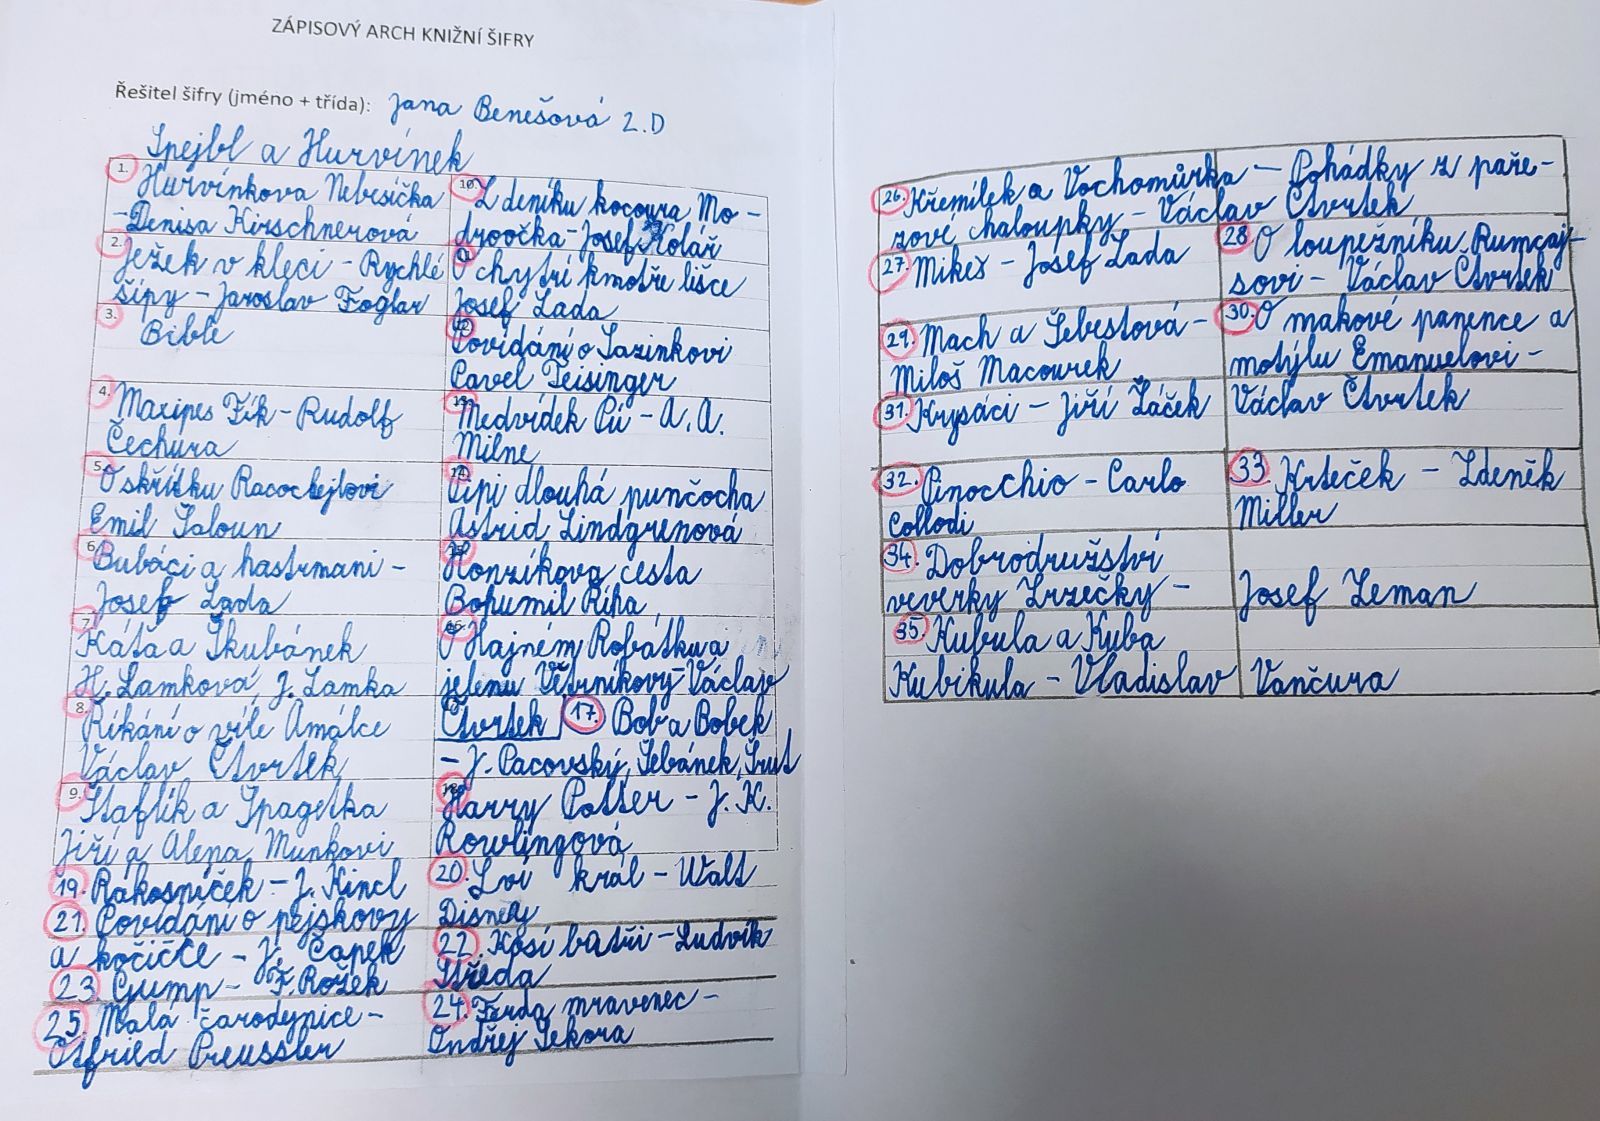 ZÁPISOVÝ ARCH KNIŽNÍ ŠIFRY
Řešitel šifry (jméno + třída): Jana Benešová 2.D
Spejbl a Hurvínek
1. Hurvínkova Nebesíčka
-Denisa Kirschnerová
2. Ježek v kleci - Rychlé
šípy - Jaroslav Foglar
3. Bible
4. Maxipes Fík - Rudolf
Čechura
5. O skřítku Racochejlovi
Emil Šaloun
6. Bubáci a hastrmani -
Josef Lada
7. Káťa a Škubánek
H. Lamková, J. Lamka
8. Říkání o víle Amálce
Václav Čtvrtek
9. Štaflík a Špagetka
Jiří a Alena Munkovi
10. Z deníku kocoura Mo-
droočka - Josef Kolář
11. O chytré kmotře lišce
Josef Lada
12. Povídání o Sazinkovi
Pavel Teisinger
13. Medvídek Pú - A. A.
Milne
14. Pipi dlouhá punčocha
Astrid Lindgrenová
15. Honzíkova cesta
Bohumil Říha
16. O Hajném Robátku a
jelenu Větrníkovy - Václav
Čtvrtek 17. Bob a Bobek
- J. Pacovský, Šebánek, Šrut
18. Harry Potter - J. K.
Rowlingová
19. Rákosníček - J. Kincl
20. Lví král - Walt
Disney
21. Povídání o pejskovy
a kočičce - J. Čapek
22. Kosí bratři - Ludvík
Středa
23. Gump - F. Rožek
24. Ferda mravenec -
Ondřej Sekora
25. Malá čarodějnice -
Otfried Preussler
26. Křemílek a Vochomůrka - Pohádky z paře-
zové chaloupky - Václav Čtvrtek
27. Mikeš - Josef Lada
28 O loupežníku Rumcaj-
sovi - Václav Čtvrtek
29. Mach a Šebestová -
Miloš Macourek
30. O makové panence a
motýlu Emanuelovi -
Václav Čtvrtek
31. Krysáci - Jiří Žáček
32. Pinocchio - Carlo
Collodi
33. Krteček - Zdeněk
Miller
34. Dobrodružství
veverky Zrzečky - Josef Zeman
35. Kubula a Kuba
Kubikula - Vladislav Vančura